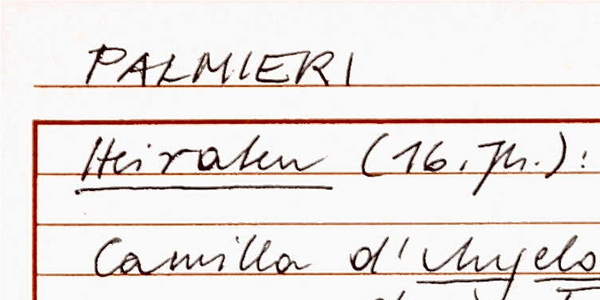 PALMIERI
Heiraten (16. Jh.):
Camilla d'Angelo